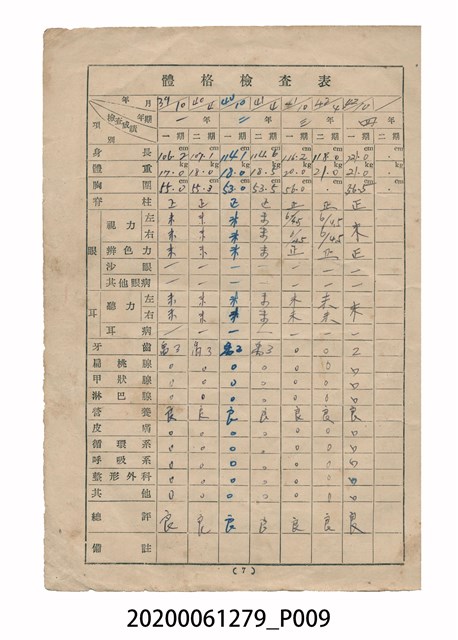 體格檢查表
年 月 39/10 40/4 40/10 41/4 41/10 42/4 42/10 /
年期 一 二 三 四
檢查成績
項別 一期 二期 一期 二期 一期 二期 一期 二期
身長 cm 106.2 107.1 114.1 116.2 118.0
體重 kg 17.0 18.0 18.0 18.5 20.0 21.0 21.0
胸圍 cm 53.0 53.5 56.0 56.5
脊柱 正 正 正 正 正 正 正
眼
視力 左 未 未 未 未
右 未 未 未 未 未
辨色力 未 未 未 未 正 正 正
沙眼 一 一 一 一 一 一 一
其他眼病 一 一 一 一 一 一 一
耳
聽力 左 未 未 未 未 未 未
右 未 未 未 未 未 未 未
耳病 一 一 一 一 一 一
牙齒 0 0 2
扁桃腺 0 0 0 0 0 0 0
甲狀腺 0 0 0 0 0 0 0
淋巴腺 0 0 0 0 0 0 0
營養 良 良 良 良 良 良 良
皮膚 0 0 0 0 0 0 0
循環系 0 0 0 0 0 0 0
呼吸系 0 0 0 0 0 0 0
整形外科 0 0 0 0 0 0 0
其他 0 0 0 0 0 0 0
總評 良 良 良 良 良 良 良
備註
(7)
20200061279_P009